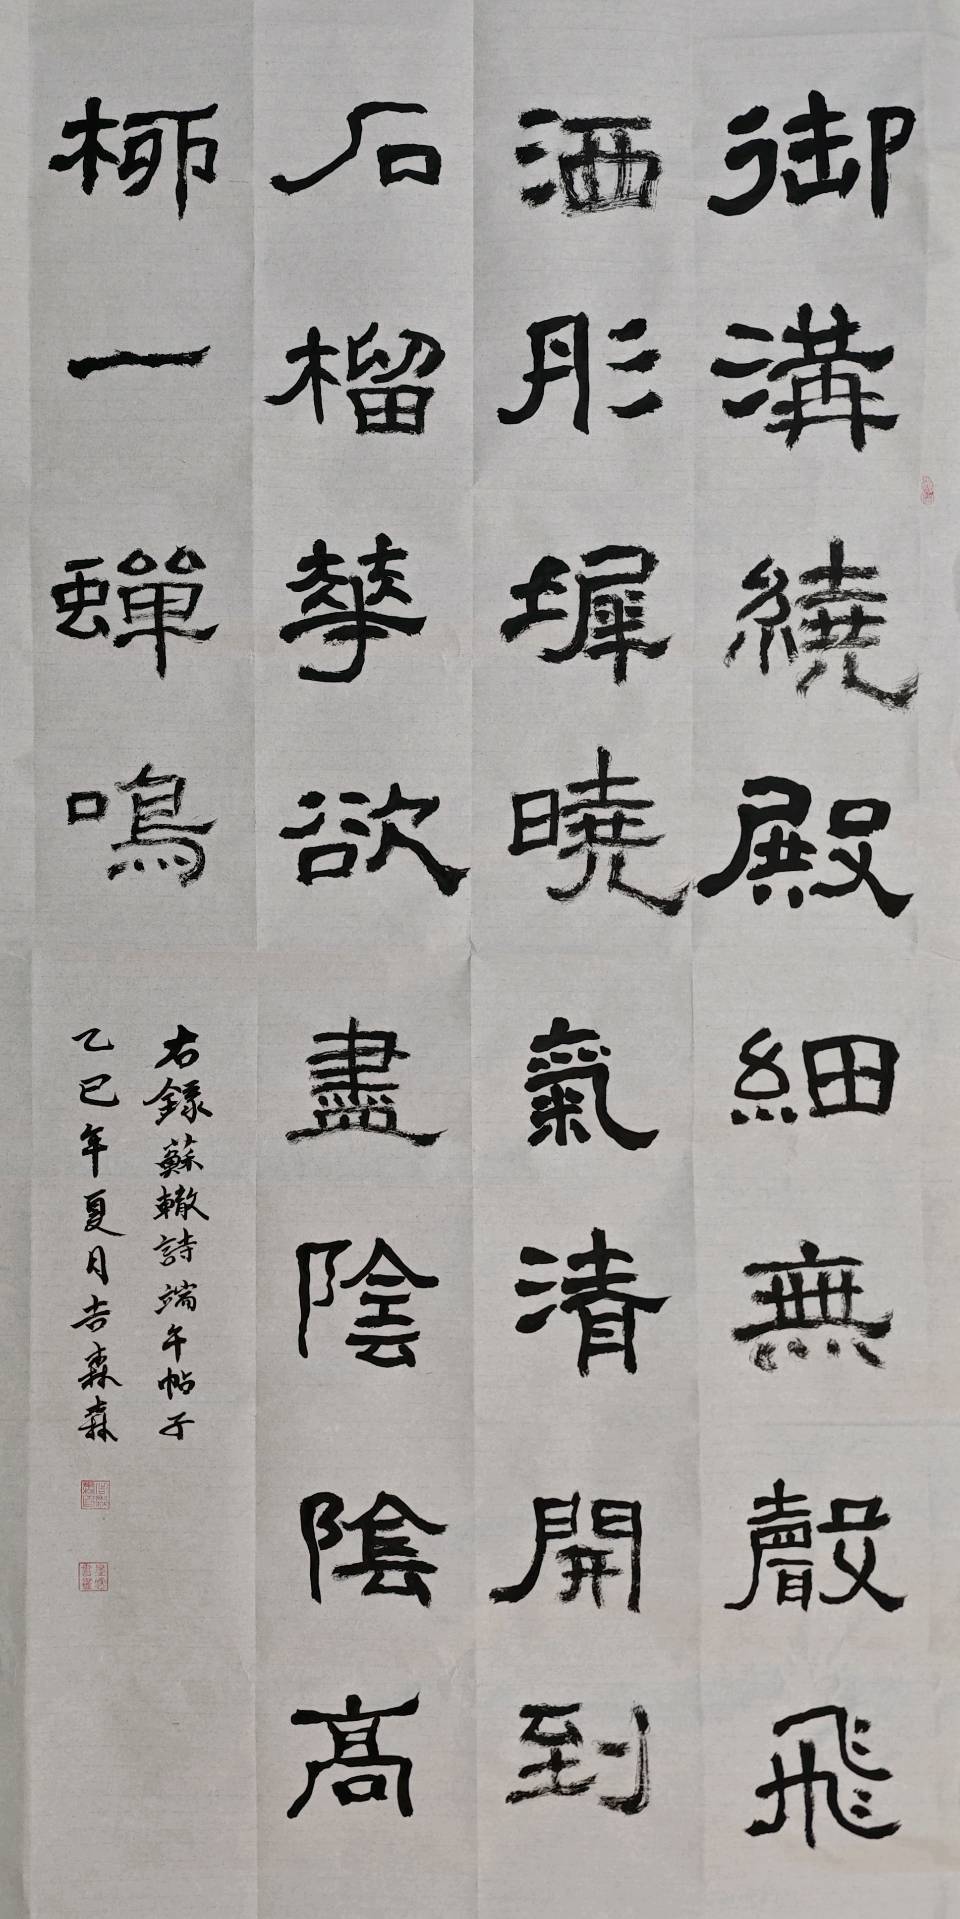 御溝繞殿細無聲飛
洒彤墀曉氣清開到
石榴華欲盡陰陰高
柳一蟬鳴
右錄蘇轍詩端午帖子
乙巳年夏月吉森森